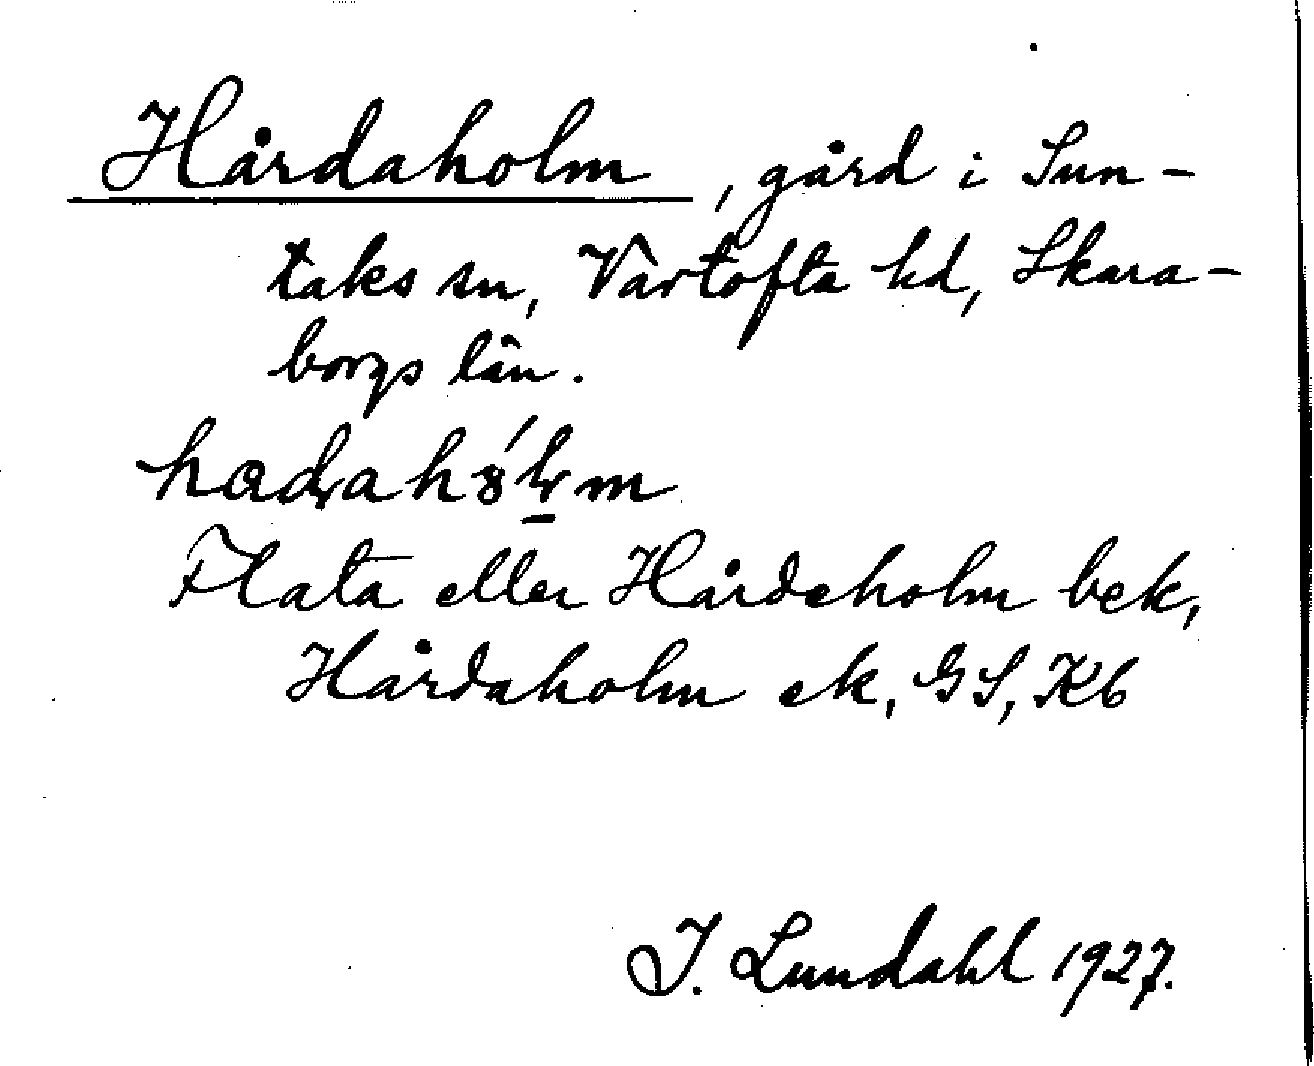 Hårdaholm, gård i Sun-
taks sn, Vartofta hd, Skara-
borgs län.
Flata eller Hårdeholm bek,
Hårdaholm ek, GS, Kb
I. Lundahl 1927.